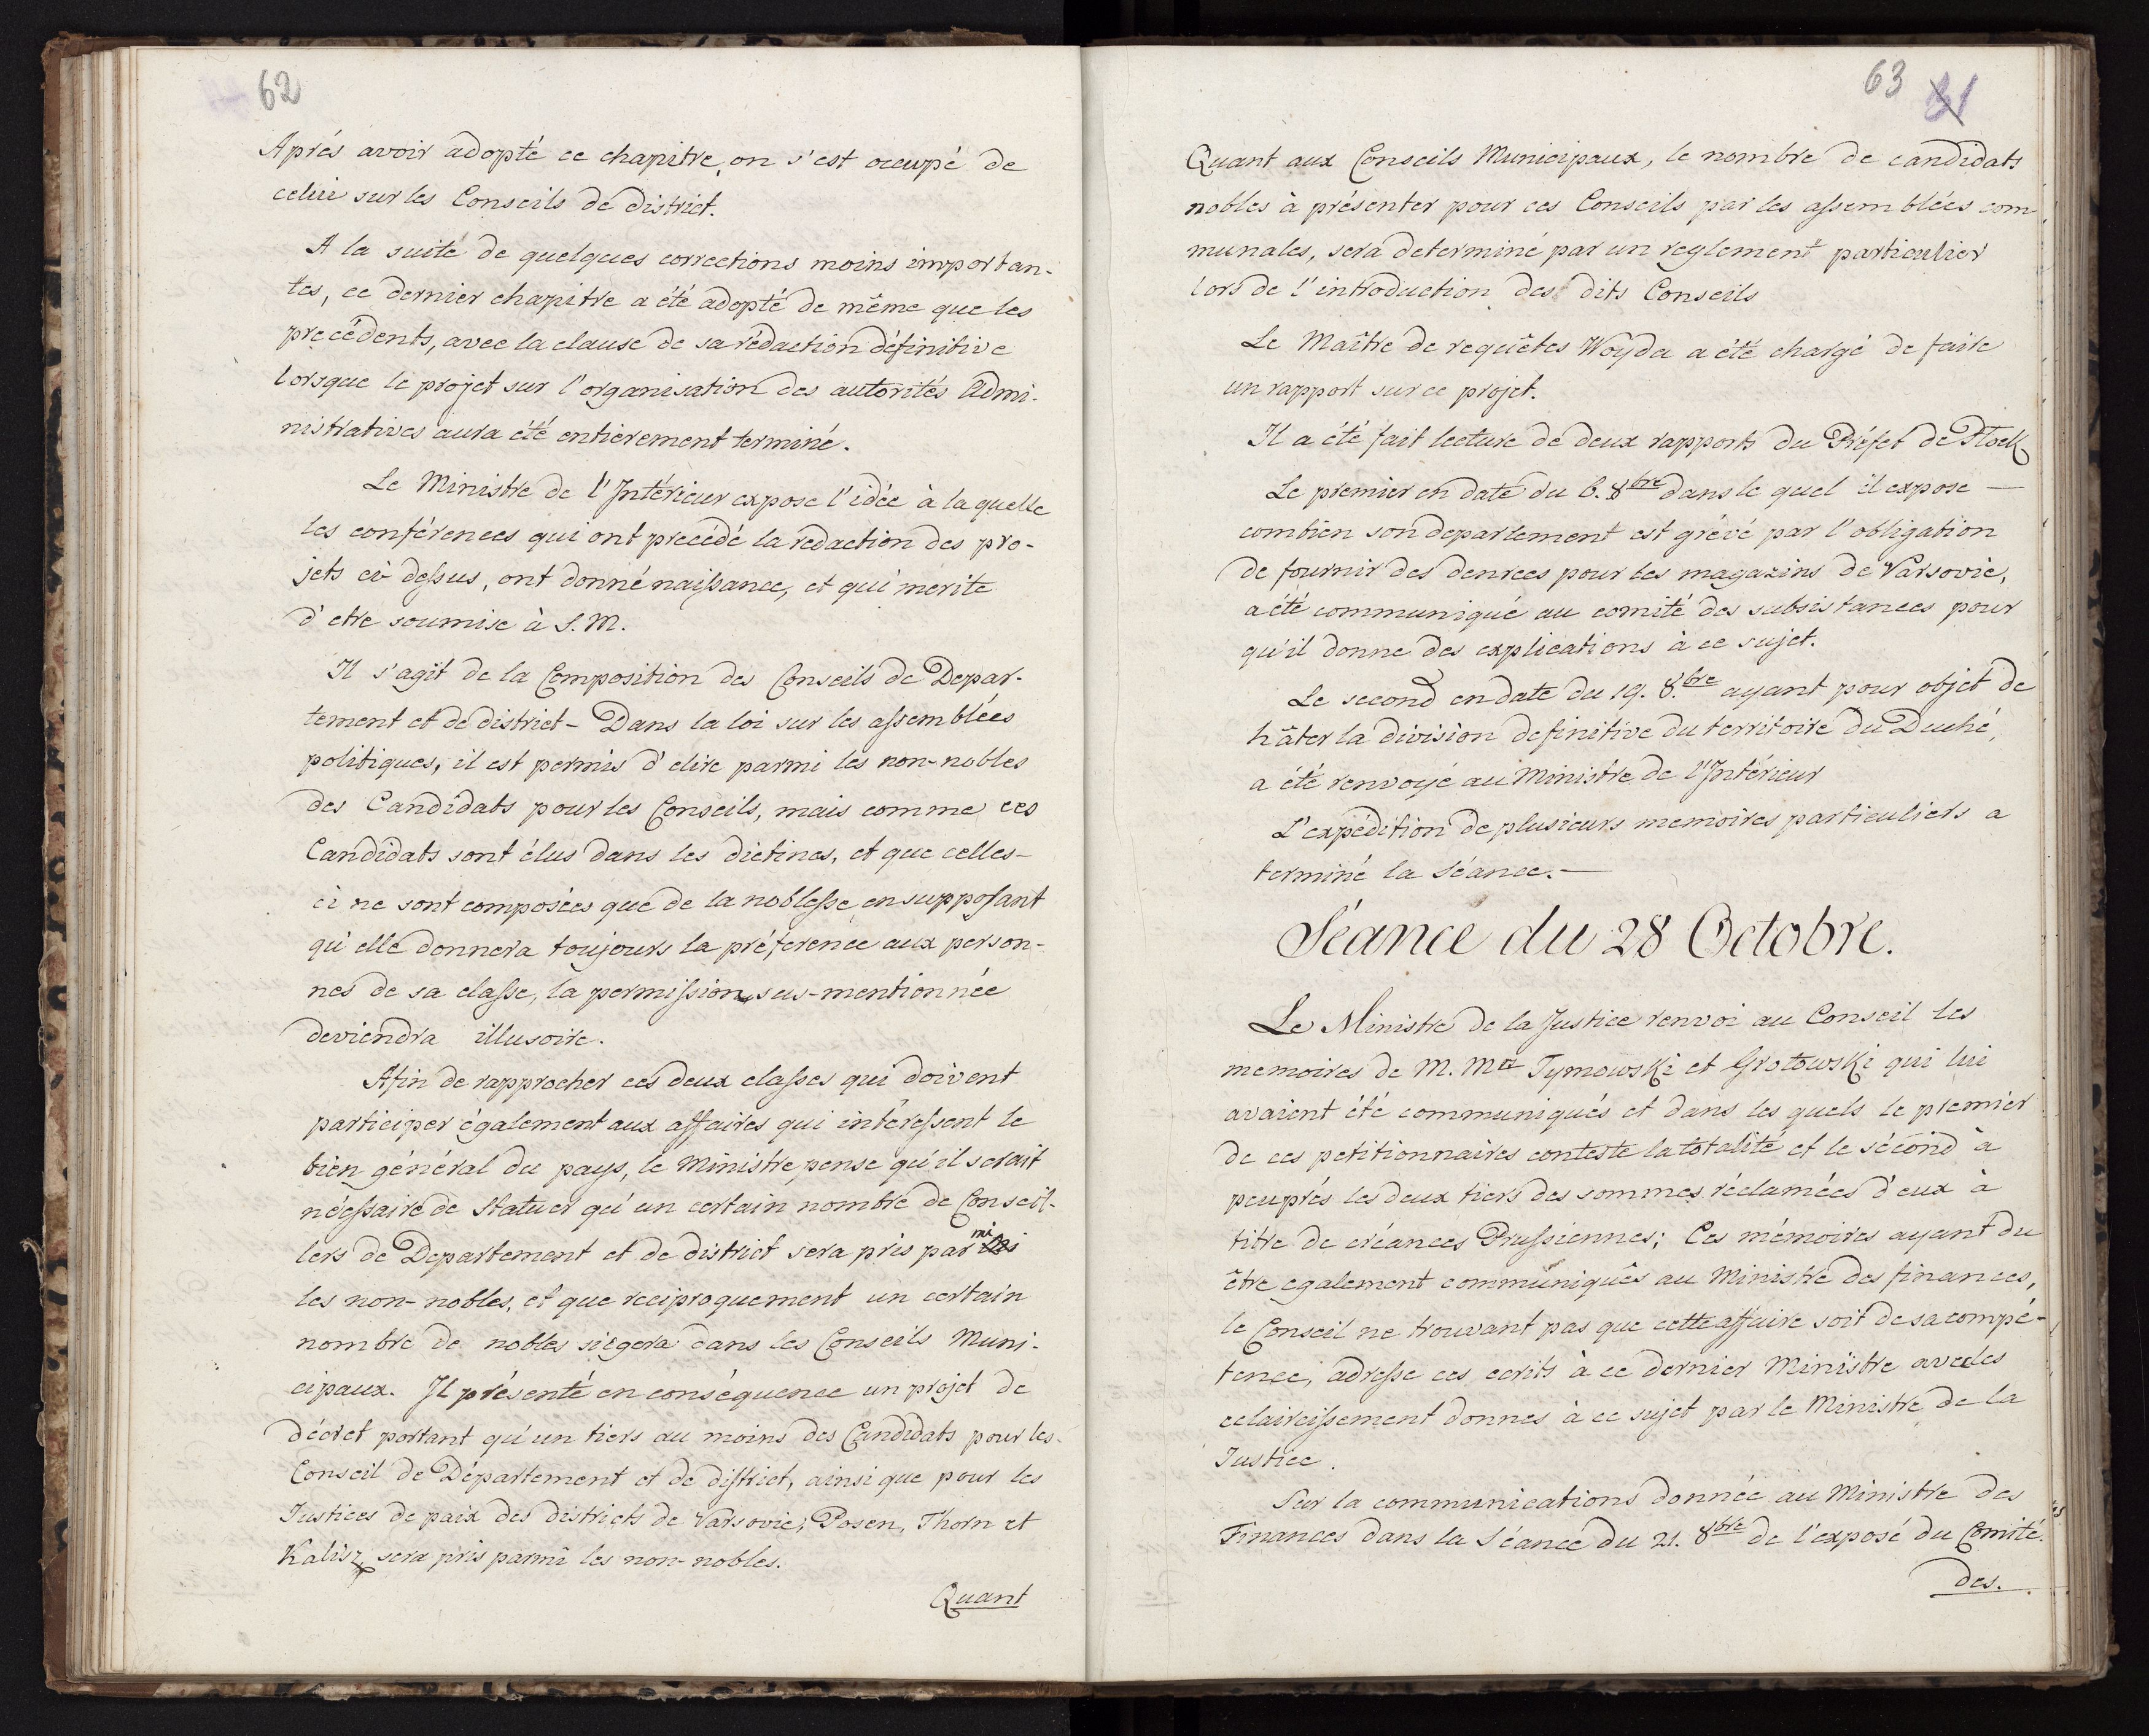 62
Aprés avoir adopté ce chapitre, on s'est occupé de
celui sur les Conseils de district.
A la suite de quelques corrections moins importan-
tes, ce dernier chapitre a été adopté de même que les
precédents, avec la clause de sa rédaction définitive
lorsque le projet sur l'organisation des autorités Admi-
nistratives aura été entierement terminé.
Le Ministre de l'Intérieur expose l'idée à la quelle
les conférences qui ont precédé la redaction des pro-
jets ci-dessus, ont donné naissance, et qui mérite
d'etre soumise à S. M.
Il s'agit de la Composition des Conseils de Depar-
tement et de district - Dans la loi sur les assemblées
politiques, il est permis d'elire parmi les non-nobles
des Candidats pour les Conseils, mais comme ces
Candidats sont élus dans les dietines, et que celles-
ci ne sont composées que de la noblesse, en supposant
qu'elle donnera toujours la préference aux person-
nes de sa classe, la permission sus-mentionnée
deviendra illusoire.
Afin de rapprocher ces deux classes qui doivent
participer également aux affaires qui intéressent le
bien général du pays, le Ministre pense qu'il serait
nécessaire de statuer qu'un certain nombre de Conseil-
lers de Departement et de district sera pris parmi
les non-nobles, et que reciproquement un certain
nombre de nobles siegera dans les Conseils Muni-
cipaux. Il présenté en conséquence un projet de
décret portant qu'un tiers au moins des Candidats pour les
Conseil de Département et de district, ainsi que pour les
Justices de paix des districts de Varsovie, Posen, Thorn et
Kalisz sera pris parmi les non-nobles.
Quant
63 31
Quant aux Conseils Municipaux, le nombre de candidats
nobles à présenter pour ces Conseils par les assemblées com
munales, sera determiné par un reglement particulier
lors de l'introduction des dits Conseils
Le Maître de requêtes Woyda a été chargé de faire
un rapport sur ce projet.
Il a été fait lecture de deux rapports du Préfet de Plock
Le premier en date du 6. 8bre dans le quel il expose —
combien son departement est grévé par l'obligation
de fournir des denrees pour les magazins de Varsovie,
a été communiqué au comité des subsistances pour
qu'il donne des explications à ce sujet.
Le second en date du 19. 8.bre ayant pour objet de
hâter la division definitive du territoire du Duché,
a été renvoyé au Ministre de l'Intérieur
L'expédition de plusieurs memoires particuliers a
terminé la Séance. —
Séance du 28 Octobre.
Le Ministre de la Justice renvoi au Conseil les
memoires de M. Mrs Tymowski et Grotowski qui lui
avaient été communiqués et dans les quels le premier
de ces petitionnaires conteste la totalité et le sécond à
peuprés les deux tiers des sommes réclamées d'eux à
titre de créances Prussiennes; Ces mémoires ayant du
être egalement communiqués au Ministre des finances,
le Conseil ne trouvant pas que cette affaire soit de sa compé-
tence, adresse ces ecrits à ce dernier Ministre avec les
eclaircissement donnes à ce sujet par le Ministre de la
Justice.
Sur la communications donnée au Ministre des
Finances dans la Séance du 21. 8bre de l'exposé du Comité
des.